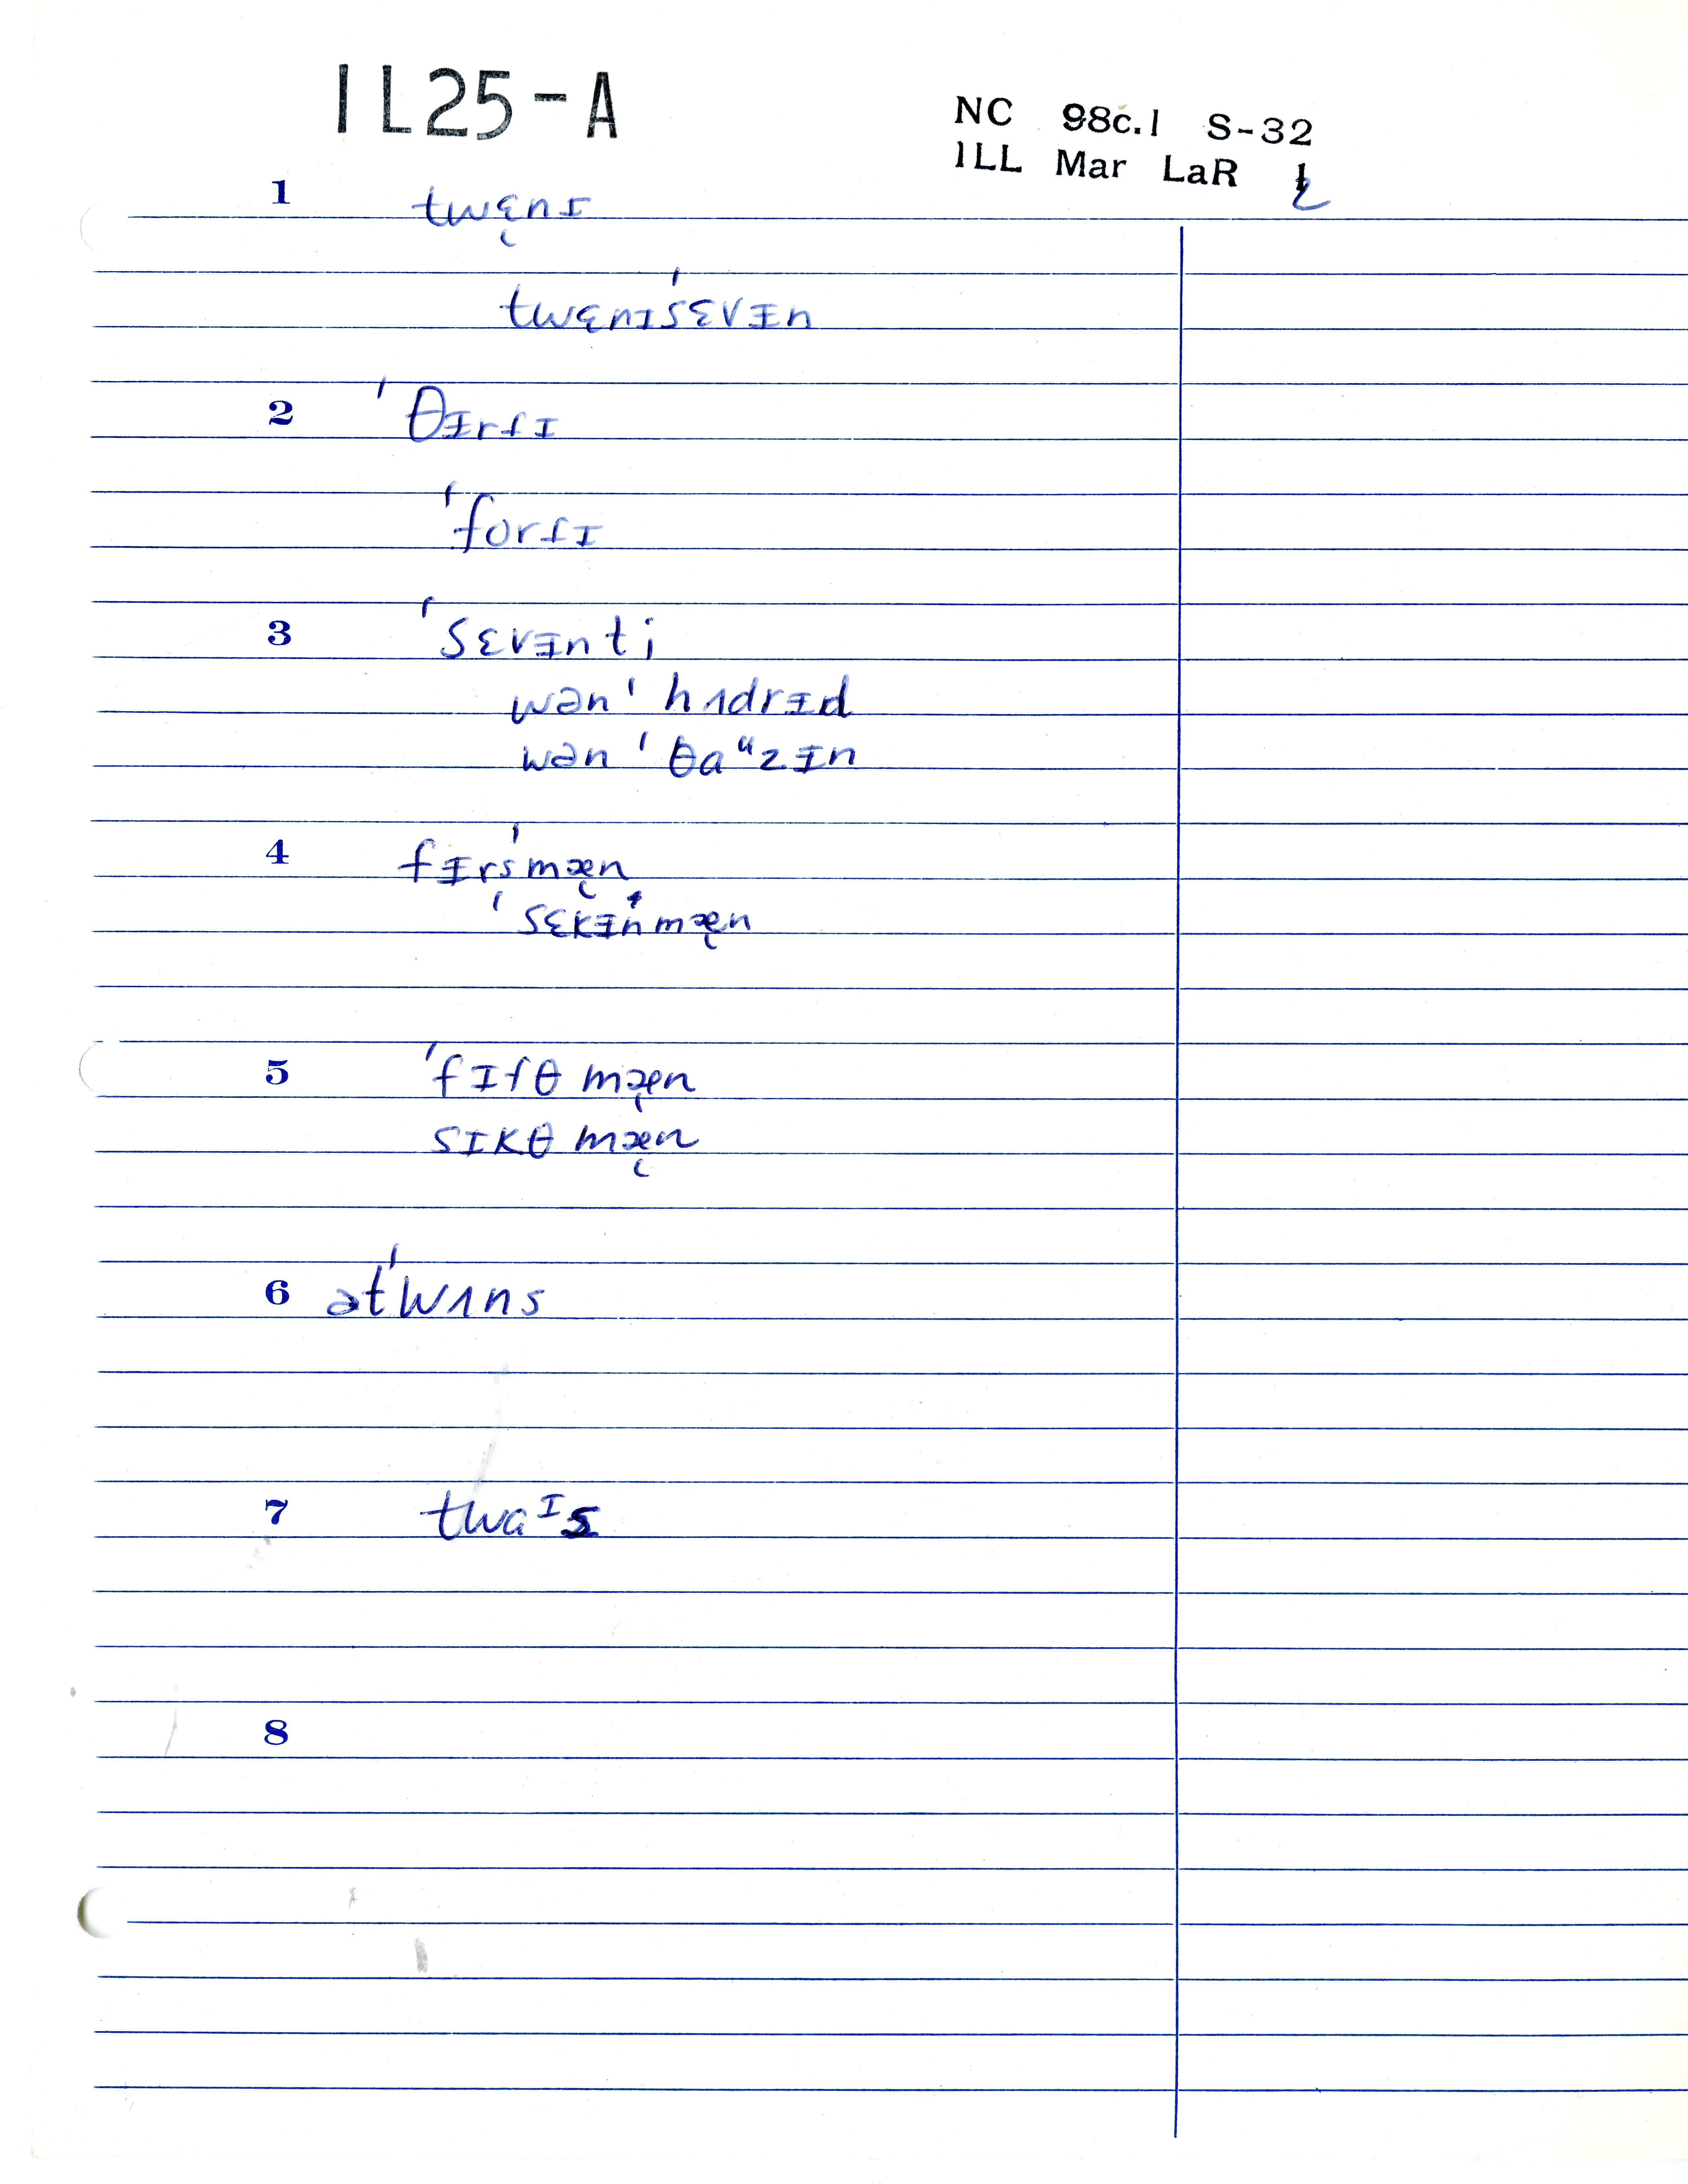 IL25-A
NC 98c.1 S-32
ILL Mar LaR 2
1 twɛ̨nɪ
twɛnɪˈsɛvɪ̵n
2 ˈθɪ̵rɾɪ
ˈforɾɪ
3 ˈsɛvɪ̵nti
wən ˈhʌdrɪ̵d
wən ˈθaᵘzɪ̵n
4 fɪ̵rsˈmæ̨n
ˈsɛkɪ̵nˈmæ̨n
5 ˈfɪfθ mæ̨n
sɪkθ mæ̨n
6 ətˈwʌns
7 twaᶦs
8